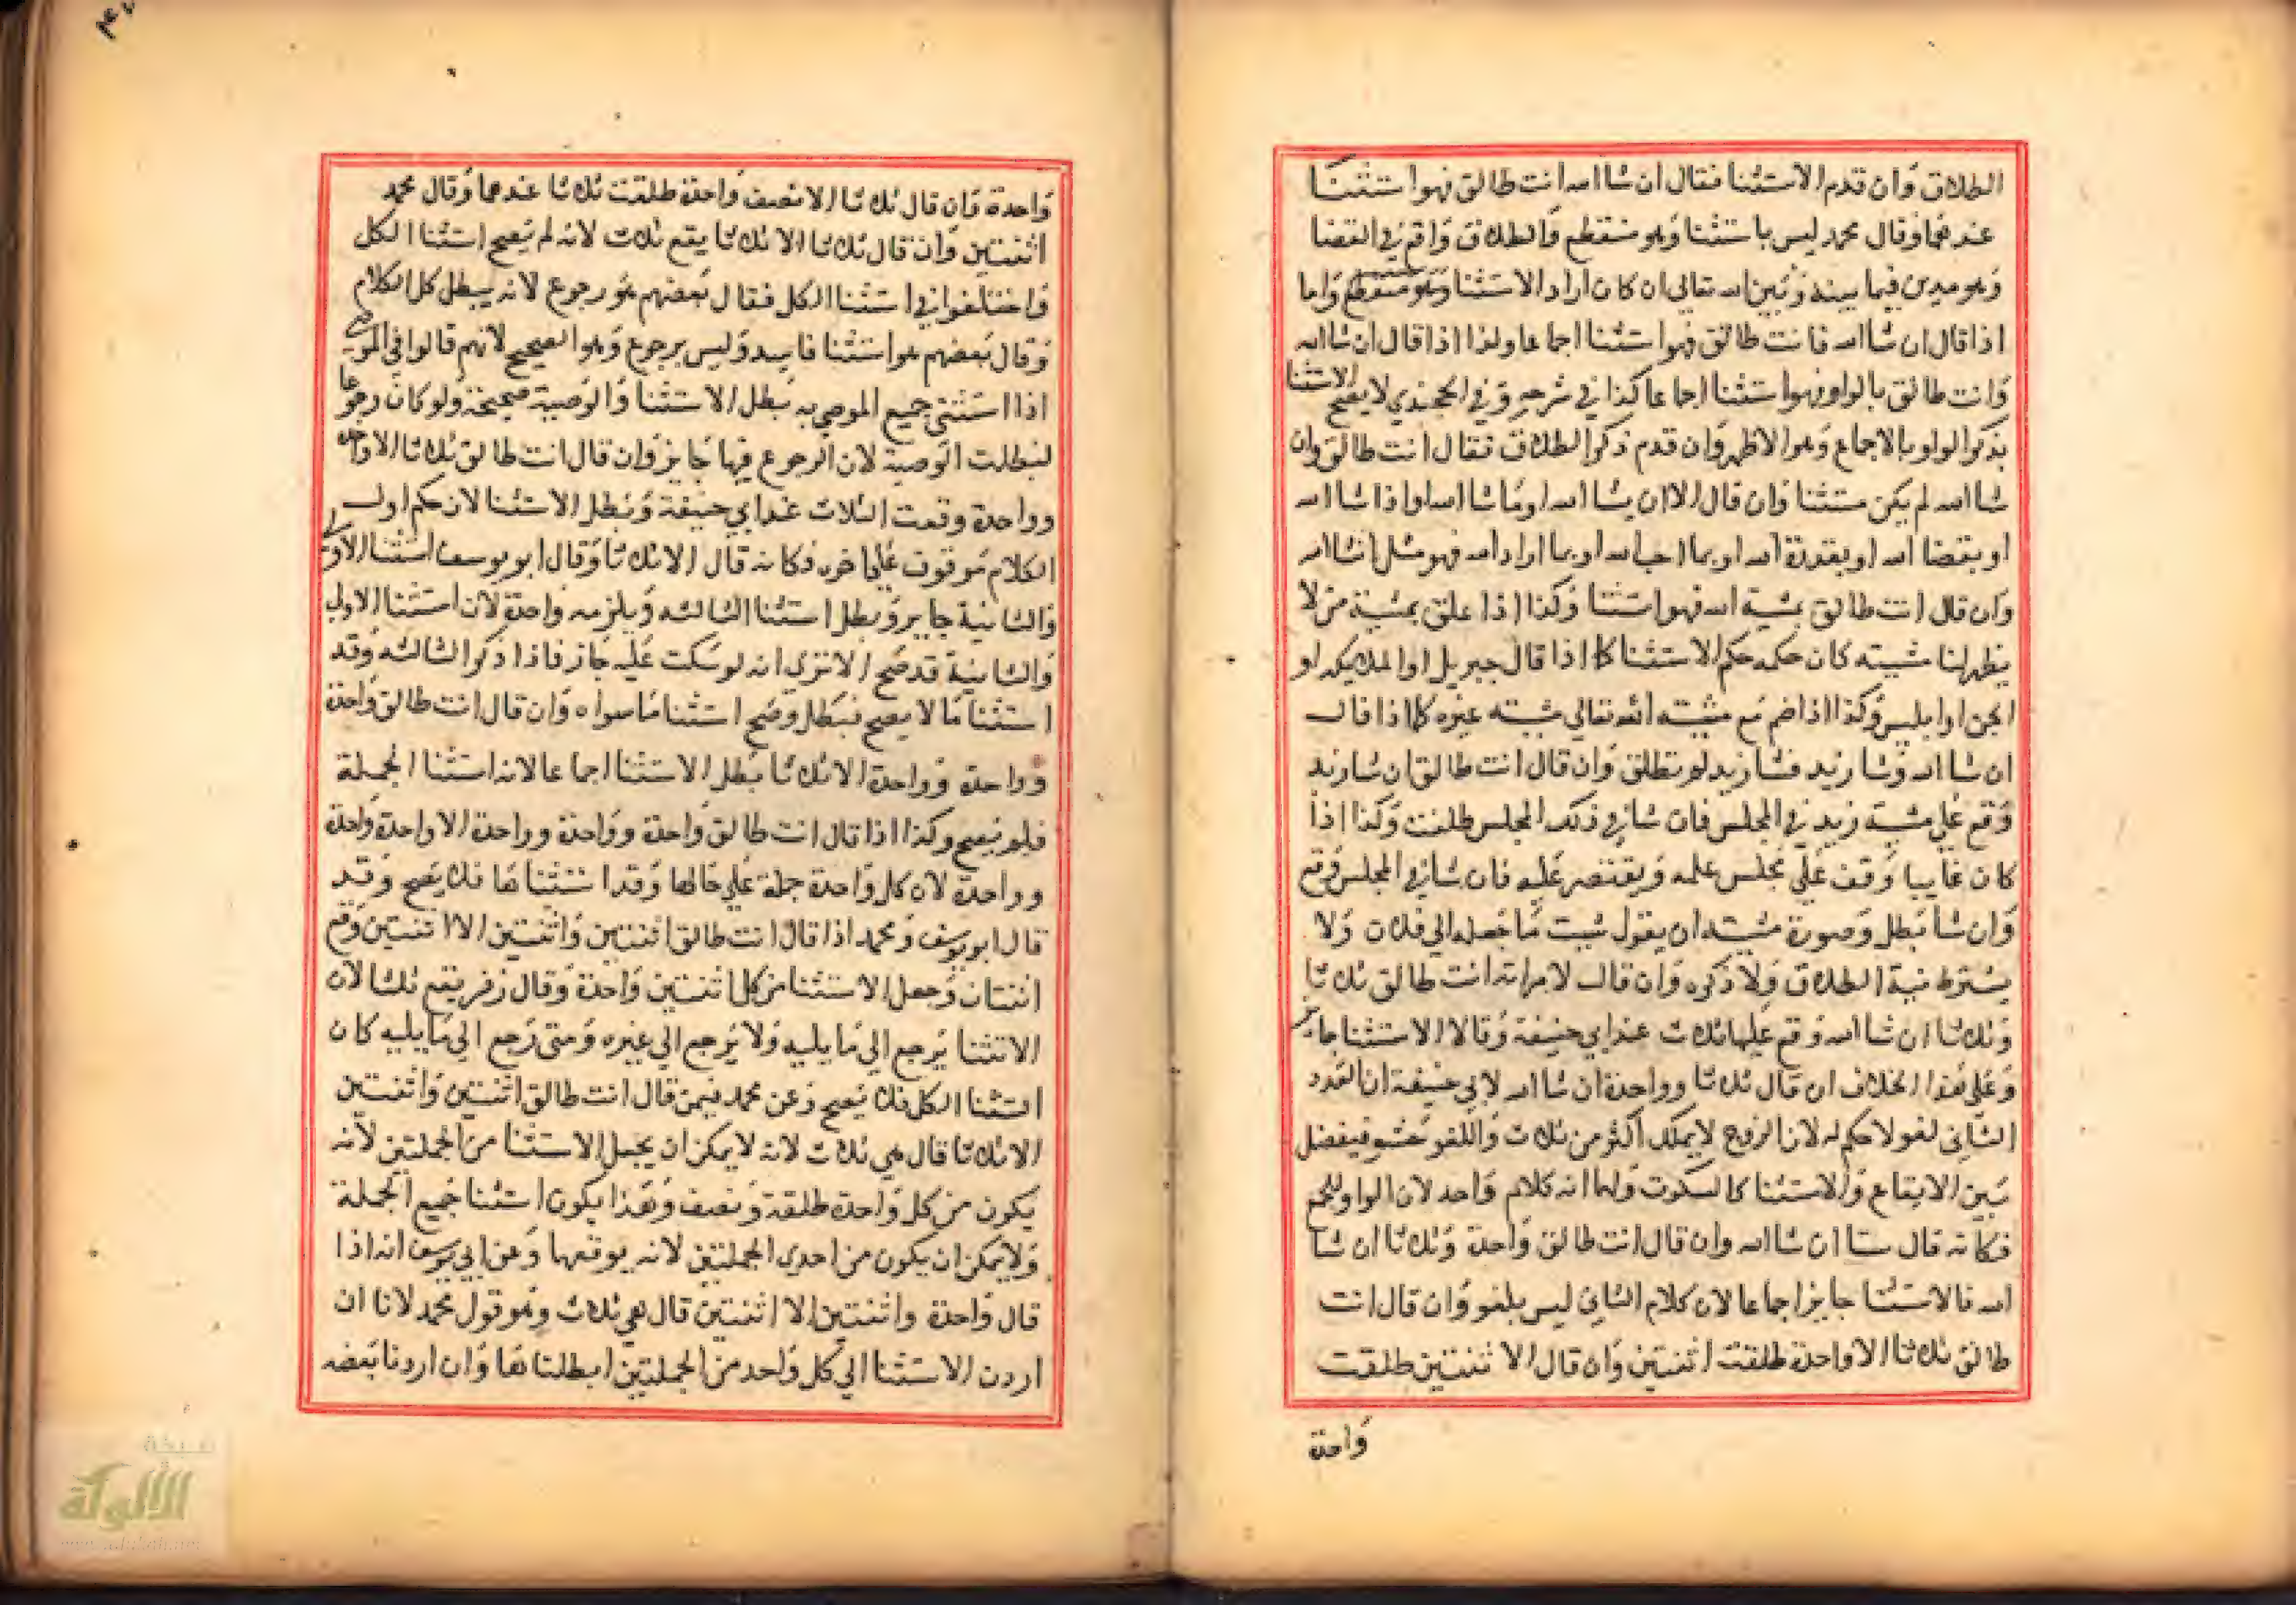 الطلاق وان قدم الاستثنا فقال ان شا الله انت طالق فهو استثنا
عندهما وقال محمد ليس باستثنا وهو منقطع والطلاق واقع في القضا
وهو مدين فيما بينه وبين الله تعالى ان كان اراد الاستثنا وهو منقطع واما
اذا قال ان شا الله فانت طالق فهو استثنا اجماعا ولذا اذا قال ان شا الله
وانت طالق بالواو فهو استثنا اجماعا كذا في شرحه وفي الخجندي لا يصح الاستثنا
بذكر الواو بالاجماع وهو الاظهر وان قدم ذكر الطلاق فقال انت طالق وان
شا الله لم يكن مستثنا وان قال الا ان يشا الله او ما شا الله او اذا شا الله
او بقضا الله او بقدرة الله او بما احب الله او بما اراد الله فهو مثل ان شا الله
وان قال انت طالق بمشية الله فهو استثنا وكذا اذا علق بمشية من لا
يظهر لنا مشيته كان حكمه حكم الاستثنا كما اذا قال جبريل او الملايكه او
الجن او ابليس وكذا اذا ضم مع مشيته الله تعالى مشيته غيره كما اذا قال
ان شا الله وشا زيد فشا زيد لو تطلق وان قال انت طالق ان شا زيد
وقع على مشية زيد في المجلس فان شا في ذلك المجلس طلقت وكذا اذا
كان غايبا وقف على مجلس علمه ويقتصر عليه فان شا في المجلس وقع
وان شا بطل وصورة مشيته ان يقول شيت ما جعله الي فلان ولا
يشترط نية الطلاق ولا ذكره وان قال لامراته انت طالق ثلاثا
وثلاثا ان شا الله وقع عليها ثلاث عند ابي حنيفة وقالا الاستثنا جايز
وعلى هذا الخلاف ان قال ثلاثا وواحدة ان شا الله لابي حنيفة ان العدد
الثاني لغو لا حكم له لان الزوج لا يملك اكثر من ثلاث واللغو حشو فيفصل
بين الايقاع والاستثنا كالسكوت ولهما انه كلام واحد لان الواو للجمع
فكانه قال ستا ان شا الله وان قال انت طالق واحدة وثلاثا ان شا
الله فالاستثنا جايز اجماعا لان كلام الثاني ليس بلغو وان قال انت
طالق ثلاثا الا واحدة طلقت اثنتين وان قال الا ثنتين طلقت
واحدة
واحدة وان قال ثلاثا الا نصف واحدة طلقت ثلاثا عندهما وقال محمد
اثنتين وان قال ثلاثا الا ثلاثا يقع ثلاث لانه لم يصح استثنا الكل
واختلفوا في استثنا الكل فقال بعضهم هو رجوع لانه يبطل كل الكلام
وقال بعضهم هو استثنا فاسد وليس برجوع وهو الصحيح لانهم قالوا في الموصي
اذا استثنى جميع الموصي به بطل الاستثنا والوصية صحيحة ولو كان رجوعا
لبطلت الوصية لان الرجوع فيها جايز وان قال انت طالق ثلاثا الا واحدة
وواحدة وقعت الثلاث عند ابي حنيفة وبطل الاستثنا لان حكم اول
الكلام موقوف على اخره فكانه قال الا ثلاثا وقال ابو يوسف استثنا الاولى
والثانية جايز وبطل استثنا الثالثه ويلزمه واحدة لان استثنا الاولى
والثانية قد صح الا ترى انه لو سكت عليه جاز فاذا ذكر الثالثه وقد
استثنا ما لا يصح فبطل وصح استثنا ما سواه وان قال انت طالق واحدة
وواحدة وواحدة الا ثلاثا بطل الاستثنا اجماعا لانه استثنا الجملة
فلو يصح وكذا اذا قال انت طالق واحدة وواحدة وواحدة الا واحدة واحدة
وواحدة لان كل واحدة جملة على حالها وقد استثناها فلا يصح وقد
قال ابو يوسف ومحمد اذا قال انت طالق اثنتين واثنتين الا اثنتين وقع
اثنتان وجعل الاستثنا من كل اثنتين واحدة وقال زفر يقع ثلثا لان
الاتثنا يرجع الي ما يليه ولا يرجع الي غيره ومتى رجع الي ما يليه كان
استثنا الكل فلا يصح وعن محمد فيمن قال انت طالق اثنتين واثنتين
الا ثلاثا قال هي ثلاث لانه لا يمكن ان يجعل الاستثنا من الجملتين لانه
يكون من كل واحدة طلقة ونصف وهذا يكون استثنا جميع الجملة
ولا يمكن ان يكون من احدى الجملتين لانه يوقعها وعن ابي يوسف انه اذا
قال واحدة واثنتين الا اثنتين قال هي ثلاث وهو قول محمد لانا ان
اردن الاستثنا الي كل واحد من الجملتين ابطلناها وان اردنا بعضه
الألوكة